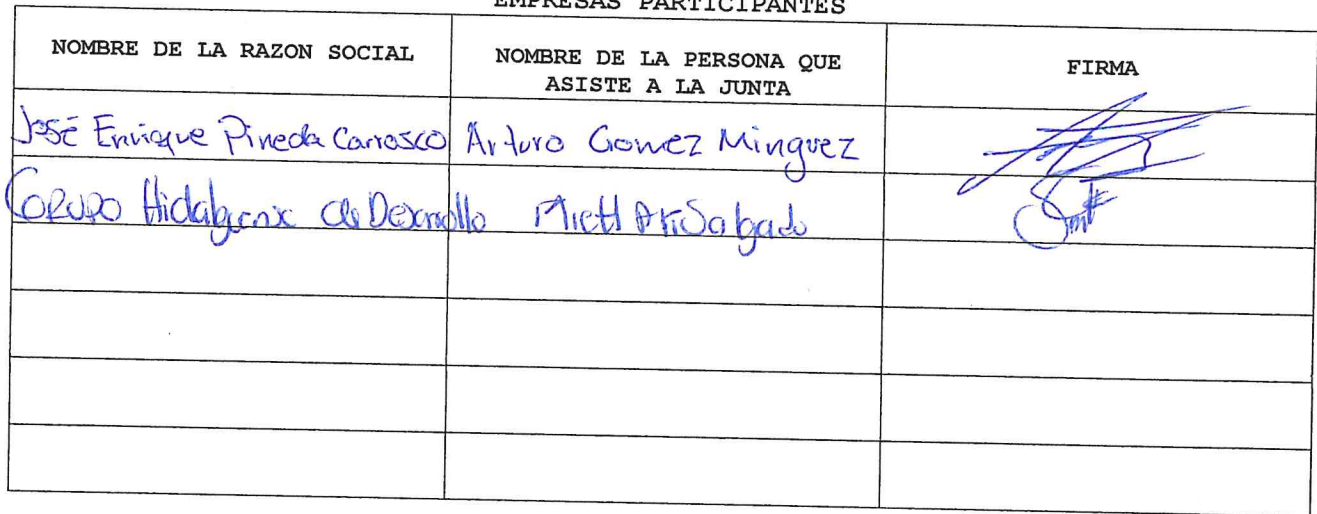 EMPRESAS PARTICIPANTES
NOMBRE DE LA RAZON SOCIAL
NOMBRE DE LA PERSONA QUE
ASISTE A LA JUNTA
FIRMA
José Enrique Pineda Carrasco Arturo Gomez Minguez
Grupo Hidalguense de Desarrollo Salgado